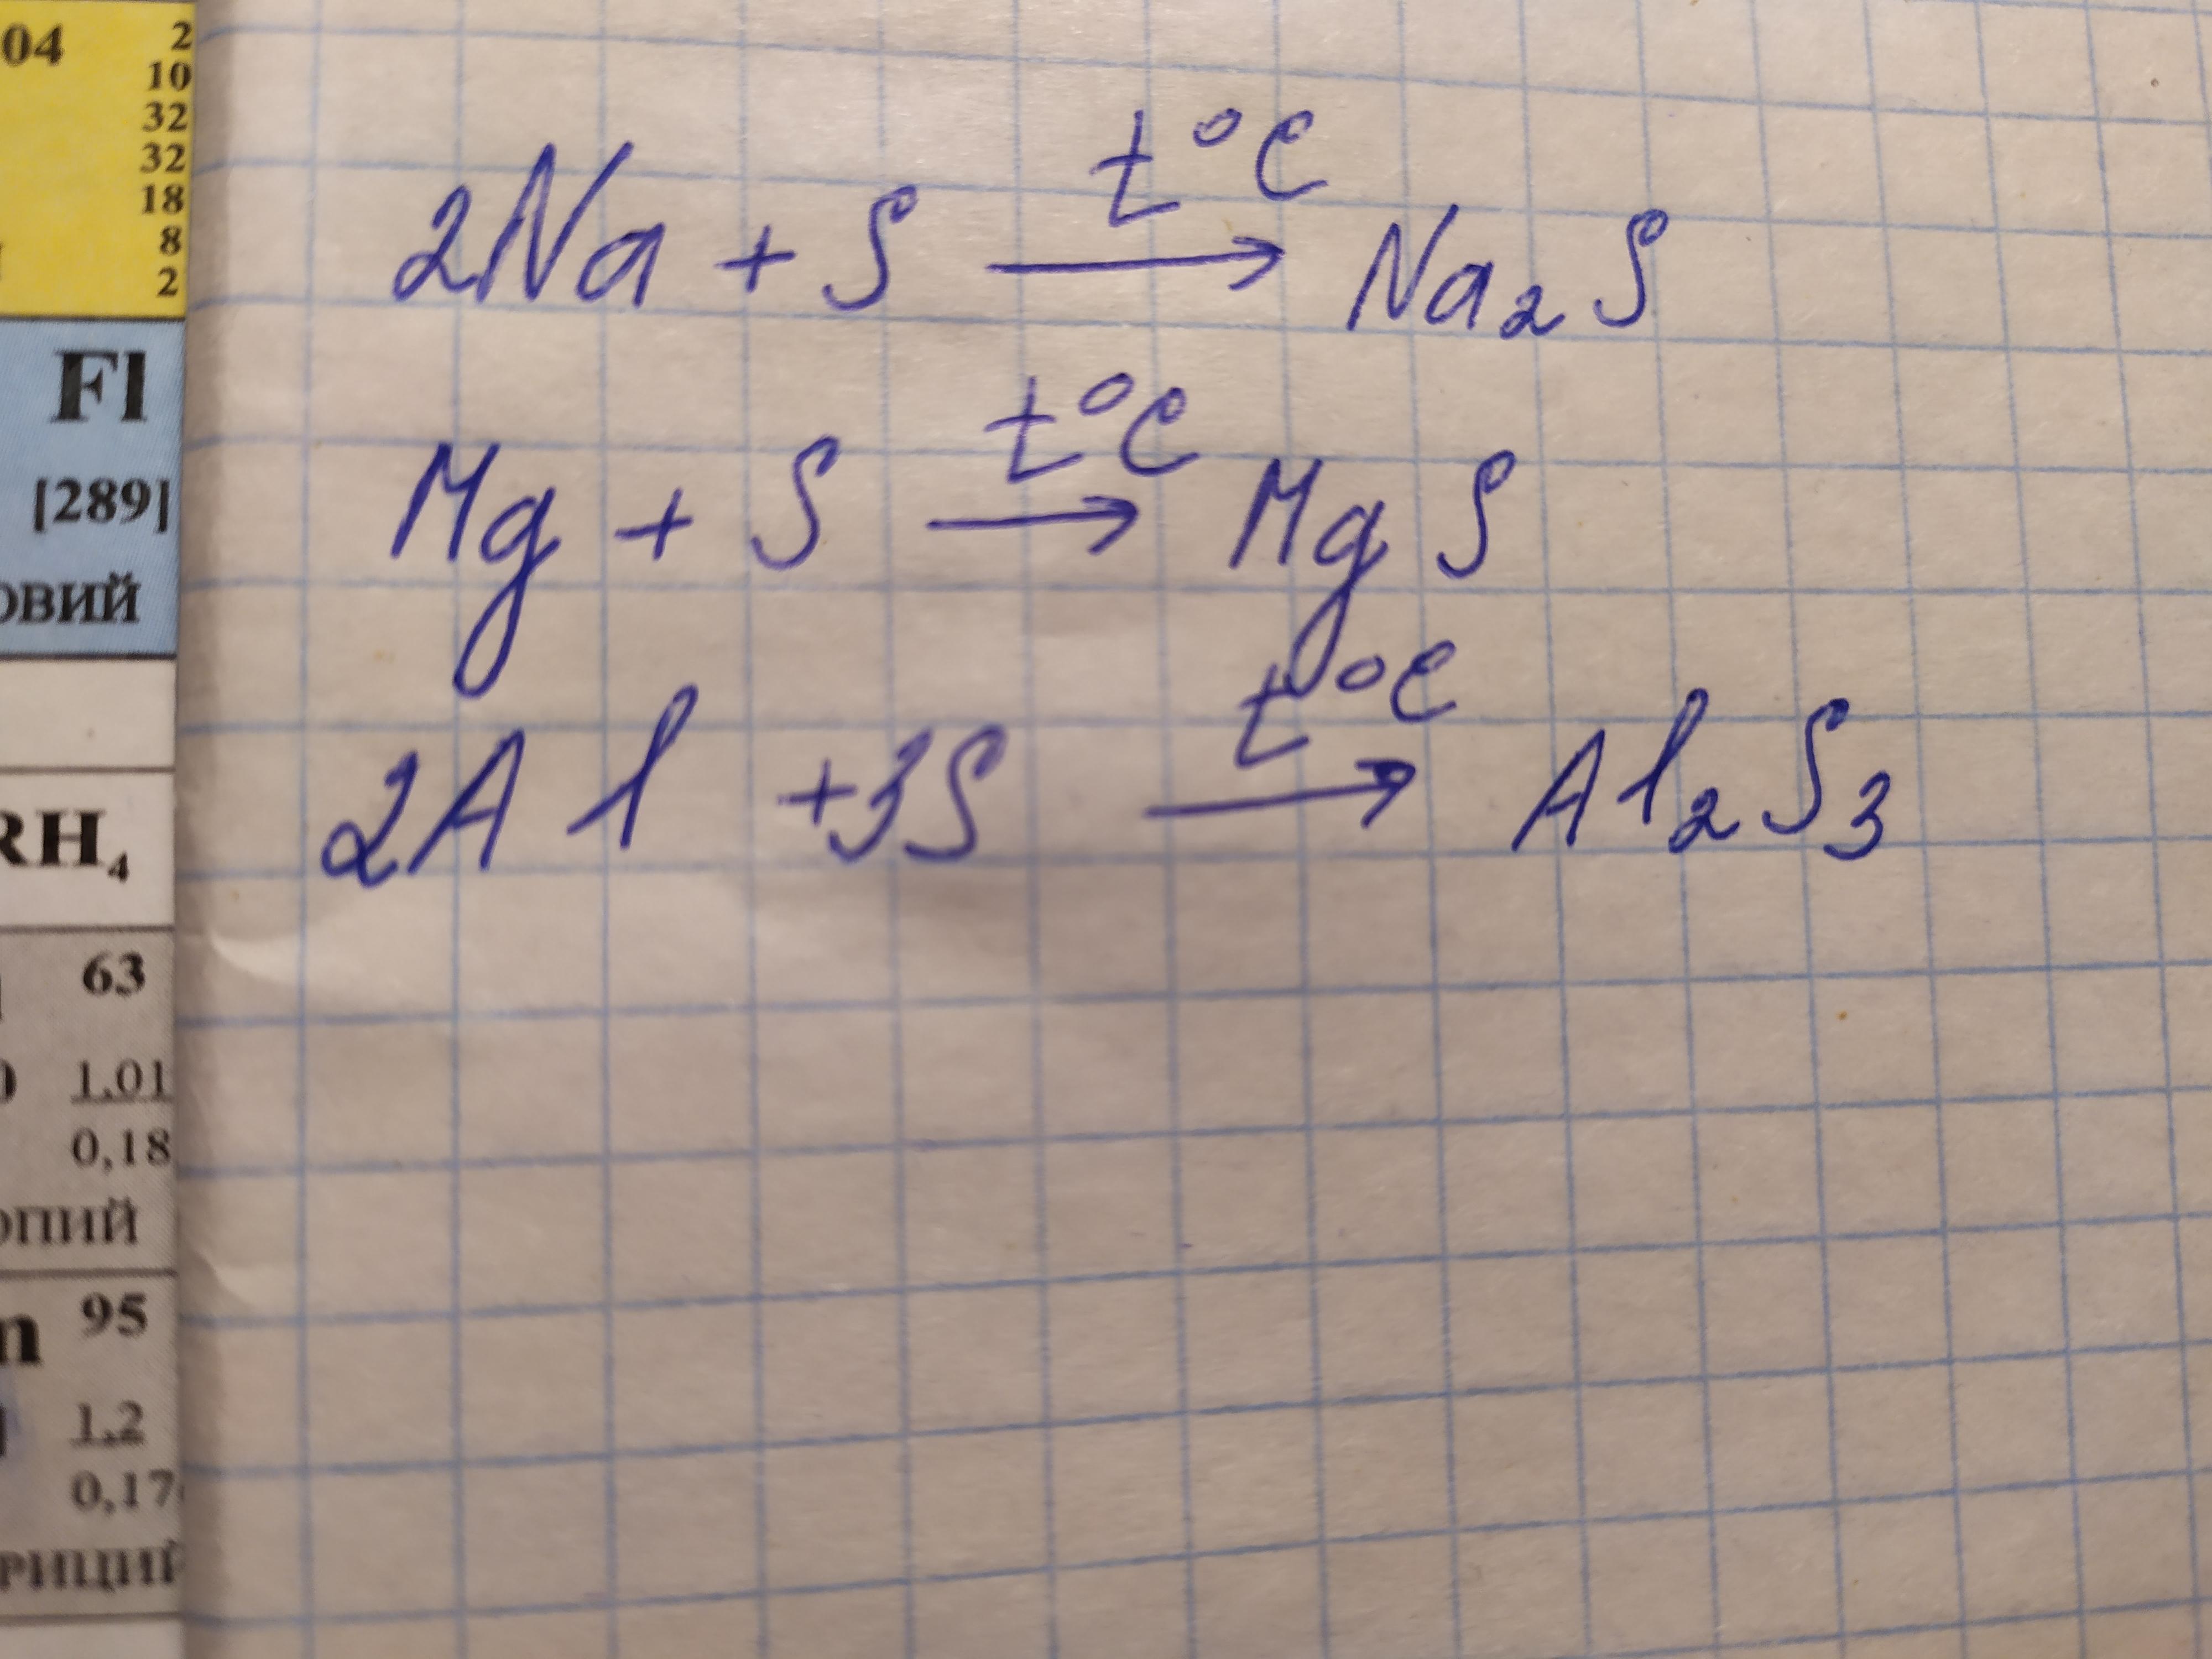 04
2
10
32
32
18
8
2
Fl
[289]
овий
RH₄
63
1,01
0,18
опій
95
1,2
0,17
рицій
t°C
2Na + S → Na₂S
t°C
Mg + S → MgS
t°C
2Al +3S → Al₂S₃